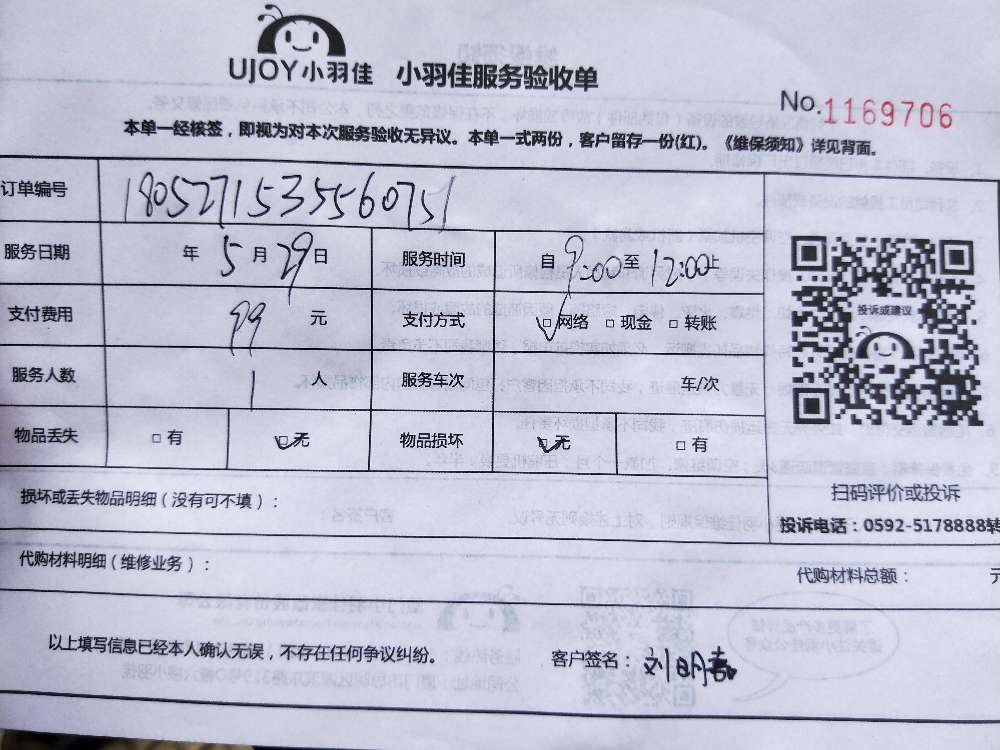 UJOY小羽佳 小羽佳服务验收单
No.1169706
本单一经核签，即视为对本次服务验收无异议。本单一式两份，客户留存一份(红)。《维保须知》详见背面。
订单编号 1805271535560751
服务日期 年 5 月 29 日 服务时间 自 9:00 至 12:00 止
支付费用 99 元 支付方式 ☑网络 □现金 □转账
服务人数 1 人 服务车次 车/次
物品丢失 □有 ☑无 物品损坏 ☑无 □有
投诉或建议
扫码评价或投诉
损坏或丢失物品明细（没有可不填）：
投诉电话：0592-5178888转
代购材料明细（维修业务）：
代购材料总额： 元
以上填写信息已经本人确认无误，不存在任何争议纠纷。 客户签名：刘明嘉